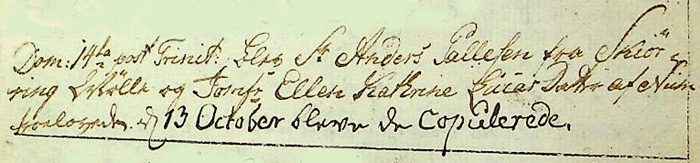 Dom: 14ta post Trinit: blev Sr Anders Pallesen fra Skiör-
ring Mölle og Jomfr Ellen Kathrine Lucas Datter af
troelovede. d 13 October bleve de Copulerede.